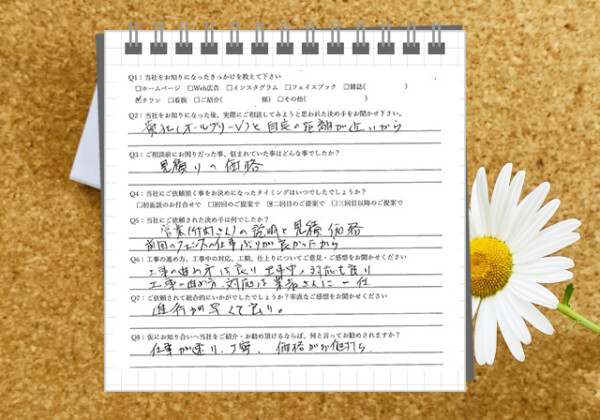 Q1：当社をお知りになったきっかけを教えて下さい
□ホームページ □Web広告 □インスタグラム □フェイスブック □雑誌( )
☑チラシ □看板 □ご紹介( 様) □その他( )
Q2：当社をお知りになった後、実際にご相談してみようと思われた決め手をお聞かせ下さい。
貴社(オールグリーン)と自宅の距離が近いから
Q3：ご相談前にお困りだった事、悩まれていた事はどんな事でしたか？
見積りの価格
Q4：当社にご依頼頂く事をお決めになったタイミングはいつでしたでしょうか？
□初面談のお打合せで □初回のご提案で ☑二回目のご提案で □三回目以降のご提案で
Q5：当社にご依頼された決め手は何でしたか？
営業(竹村さん)の説明と見積価格
前回のフェンスの仕事ぶりが良かったから
Q6：工事の進め方、工事中の対応、工期、仕上りについてご意見・ご感想をお聞かせください
工事の進め方は良り 工事中の対応も良り
工事の進め方、対応は業者さんに一任
Q7：ご依頼されて総合的にいかがでしたでしょうか？率直なご感想をお聞かせください
進行が早くて良り。
Q8：仮にお知り合いへ当社をご紹介・お勧め頂けるならば、何と言ってお勧めされますか？
仕事が速り、丁寧、価格がお値打ち